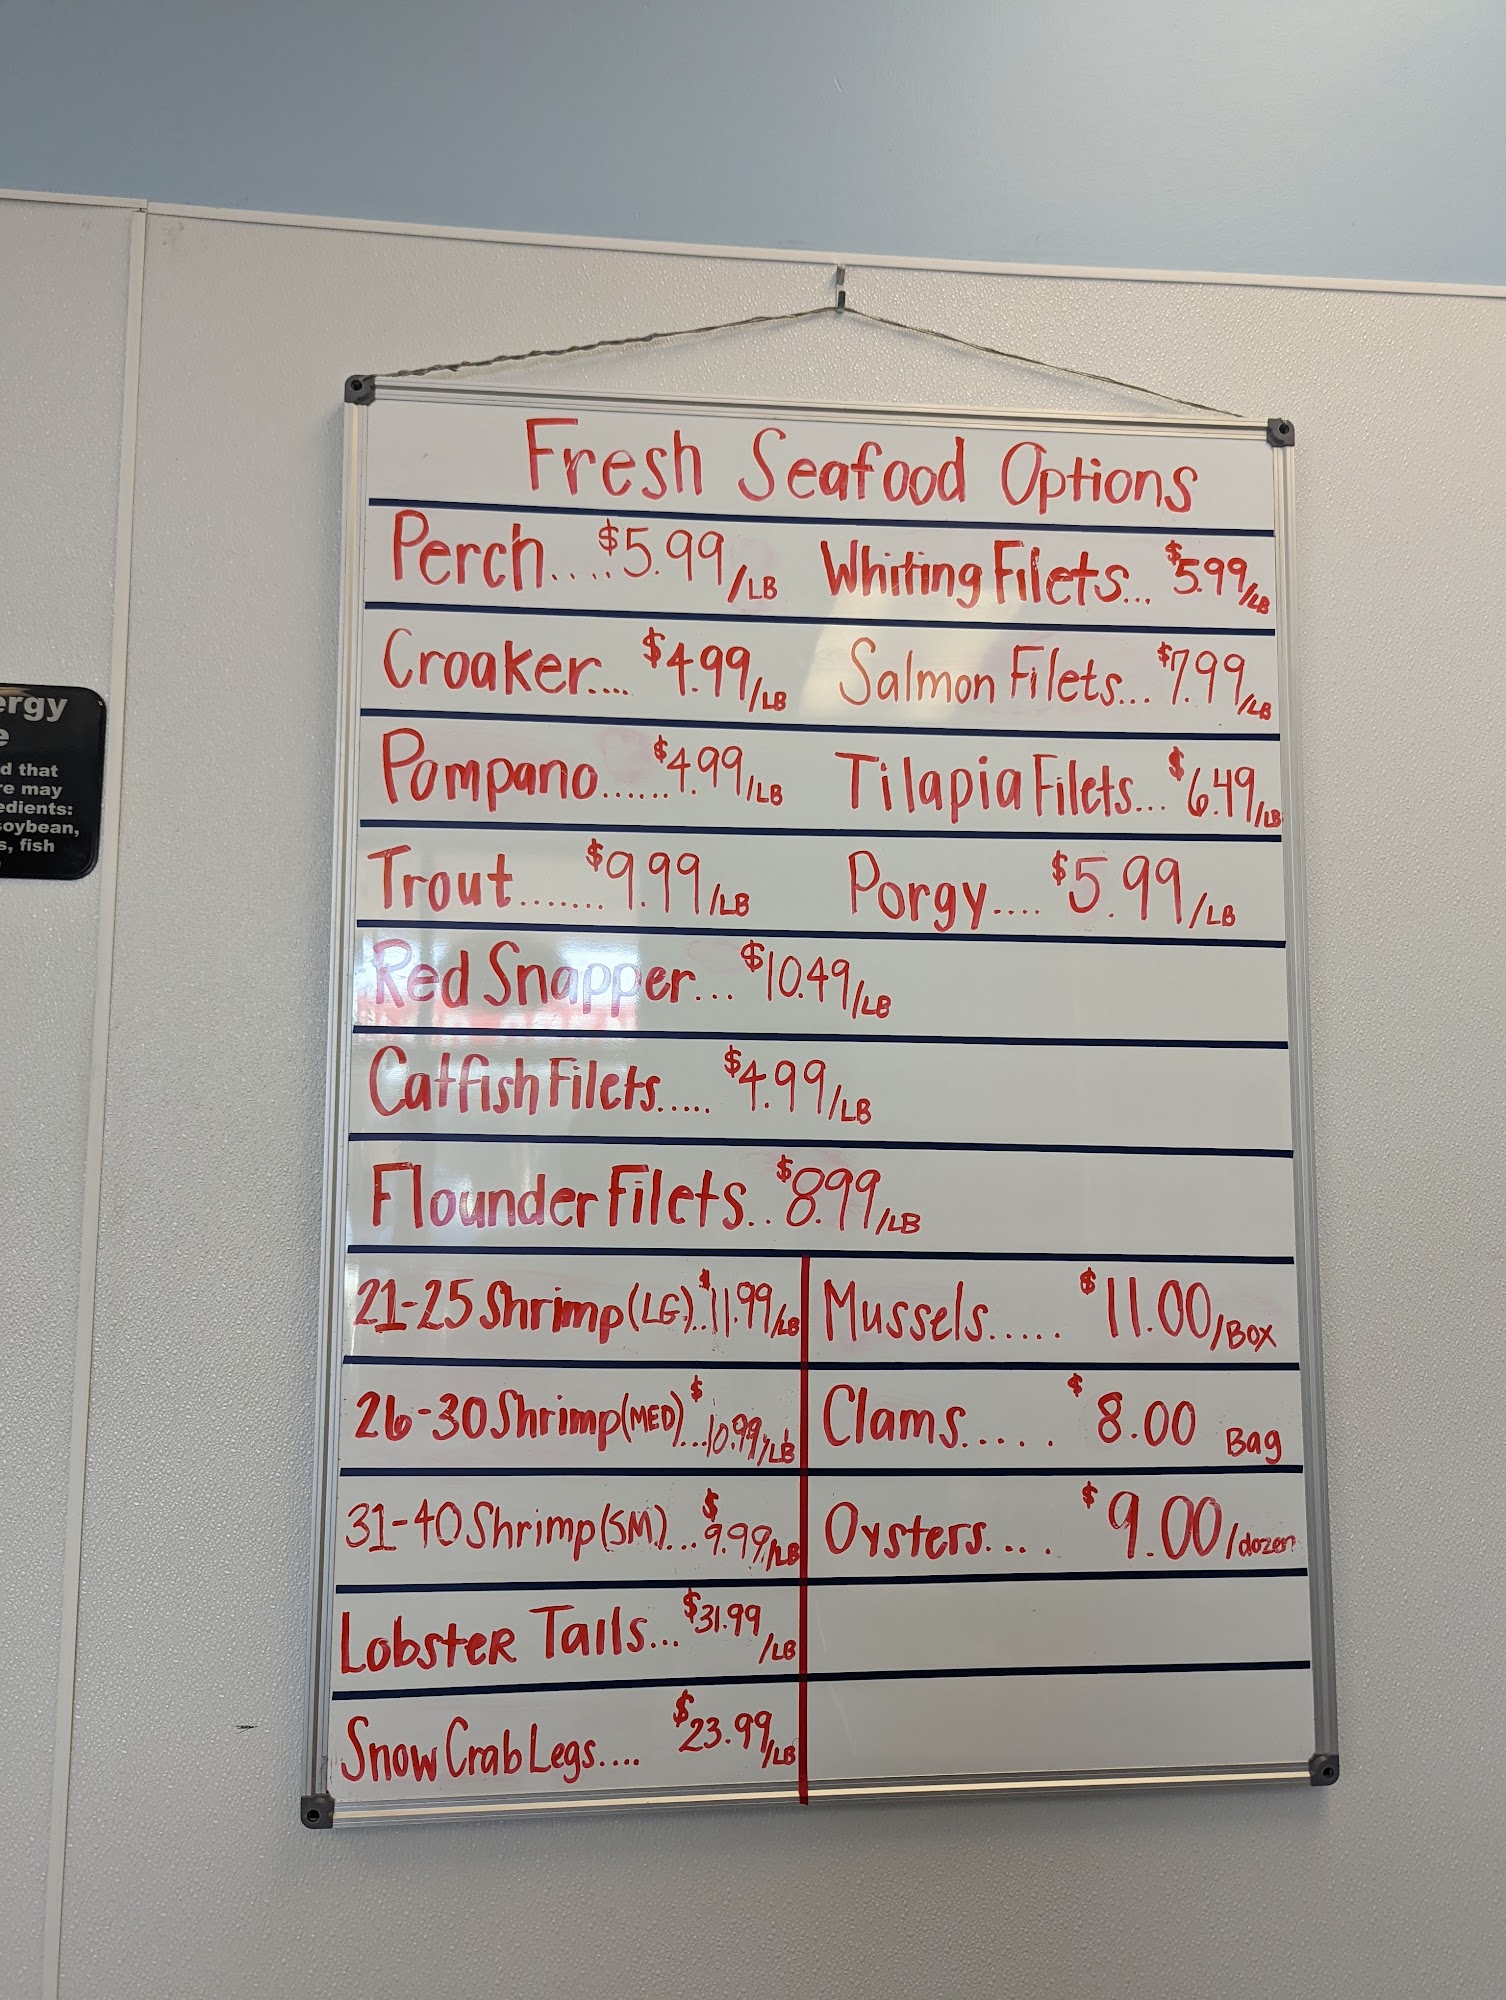 Fresh Seafood Options
Perch....$5.99/LB Whiting Filets...$5.99/LB
Croaker....$4.99/LB Salmon Filets...$7.99/LB
Pompano......$4.99/LB Tilapia Filets...$6.49/LB
Trout.......$9.99/LB Porgy....$5.99/LB
Red Snapper...$10.49/LB
Catfish Filets.....$4.99/LB
Flounder Filets..$8.99/LB
21-25 Shrimp (LG)..$11.99/LB Mussels.....$11.00/Box
26-30 Shrimp (MED)...$10.99/LB Clams.....$8.00 Bag
31-40 Shrimp (SM)...$9.99/LB Oysters....$9.00/dozen
Lobster Tails...$31.99/LB
Snow Crab Legs....$23.99/LB
ergy
e
d that
re may
edients:
soybean,
s, fish